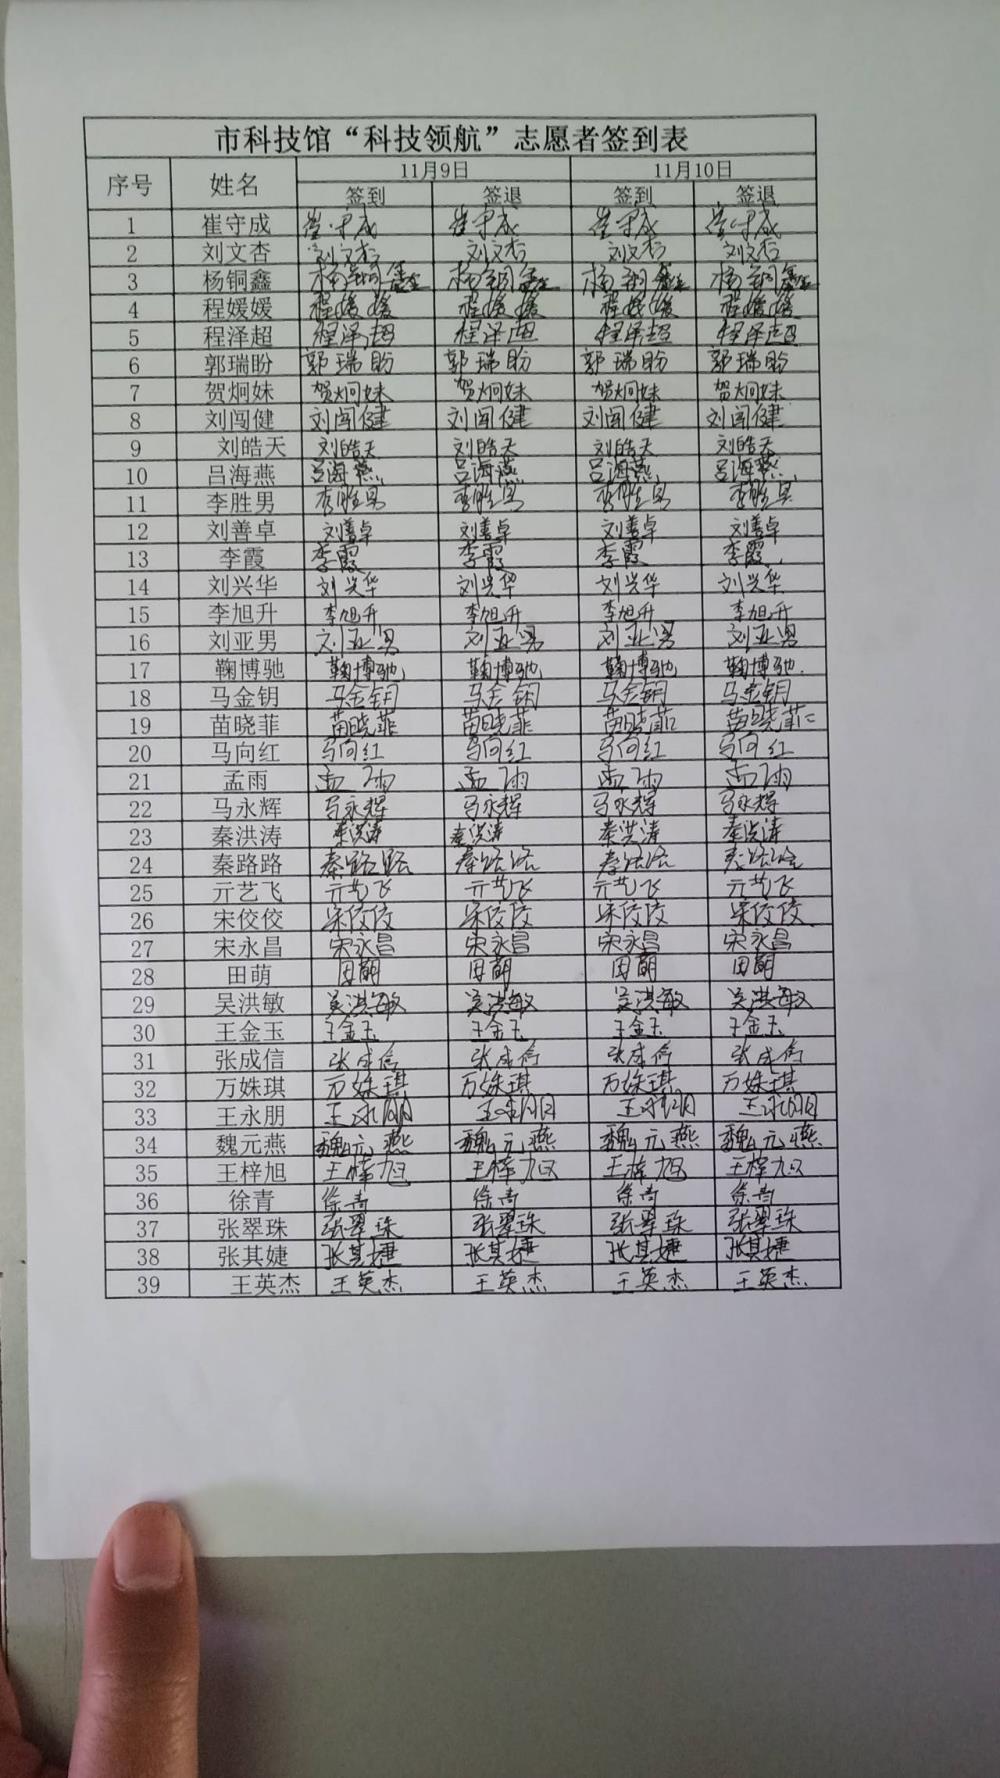 市科技馆“科技领航”志愿者签到表
序号 姓名 11月9日 11月10日
签到 签退 签到 签退
1 崔守成 崔守成 崔守成 崔守成 崔守成
2 刘文杏 刘文杏 刘文杏 刘文杏 刘文杏
3 杨铜鑫 杨铜鑫 杨铜鑫 杨铜鑫 杨铜鑫
4 程媛媛 程媛媛 程媛媛 程媛媛 程媛媛
5 程泽超 程泽超 程泽超 程泽超 程泽超
6 郭瑞盼 郭瑞盼 郭瑞盼 郭瑞盼 郭瑞盼
7 贺炯妹 贺炯妹 贺炯妹 贺炯妹 贺炯妹
8 刘闯健 刘闯健 刘闯健 刘闯健 刘闯健
9 刘皓天 刘皓天 刘皓天 刘皓天 刘皓天
10 吕海燕 吕海燕 吕海燕 吕海燕 吕海燕
11 李胜男 李胜男 李胜男 李胜男 李胜男
12 刘善卓 刘善卓 刘善卓 刘善卓 刘善卓
13 李霞 李霞 李霞 李霞 李霞
14 刘兴华 刘兴华 刘兴华 刘兴华 刘兴华
15 李旭升 李旭升 李旭升 李旭升 李旭升
16 刘亚男 刘亚男 刘亚男 刘亚男 刘亚男
17 鞠博驰 鞠博驰 鞠博驰 鞠博驰 鞠博驰
18 马金钥 马金钥 马金钥 马金钥 马金钥
19 苗晓菲 苗晓菲 苗晓菲 苗晓菲 苗晓菲
20 马向红 马向红 马向红 马向红 马向红
21 孟雨 孟雨 孟雨 孟雨 孟雨
22 马永辉 马永辉 马永辉 马永辉 马永辉
23 秦洪涛 秦洪涛 秦洪涛 秦洪涛 秦洪涛
24 秦路路 秦路路 秦路路 秦路路 秦路路
25 亓艺飞 亓艺飞 亓艺飞 亓艺飞 亓艺飞
26 宋佼佼 宋佼佼 宋佼佼 宋佼佼 宋佼佼
27 宋永昌 宋永昌 宋永昌 宋永昌 宋永昌
28 田萌 田萌 田萌 田萌 田萌
29 吴洪敏 吴洪敏 吴洪敏 吴洪敏 吴洪敏
30 王金玉 王金玉 王金玉 王金玉 王金玉
31 张成信 张成信 张成信 张成信 张成信
32 万姝琪 万姝琪 万姝琪 万姝琪 万姝琪
33 王永朋 王永朋 王永朋 王永朋 王永朋
34 魏元燕 魏元燕 魏元燕 魏元燕 魏元燕
35 王梓旭 王梓旭 王梓旭 王梓旭 王梓旭
36 徐青 徐青 徐青 徐青 徐青
37 张翠珠 张翠珠 张翠珠 张翠珠 张翠珠
38 张其婕 张其婕 张其婕 张其婕 张其婕
39 王英杰 王英杰 王英杰 王英杰 王英杰